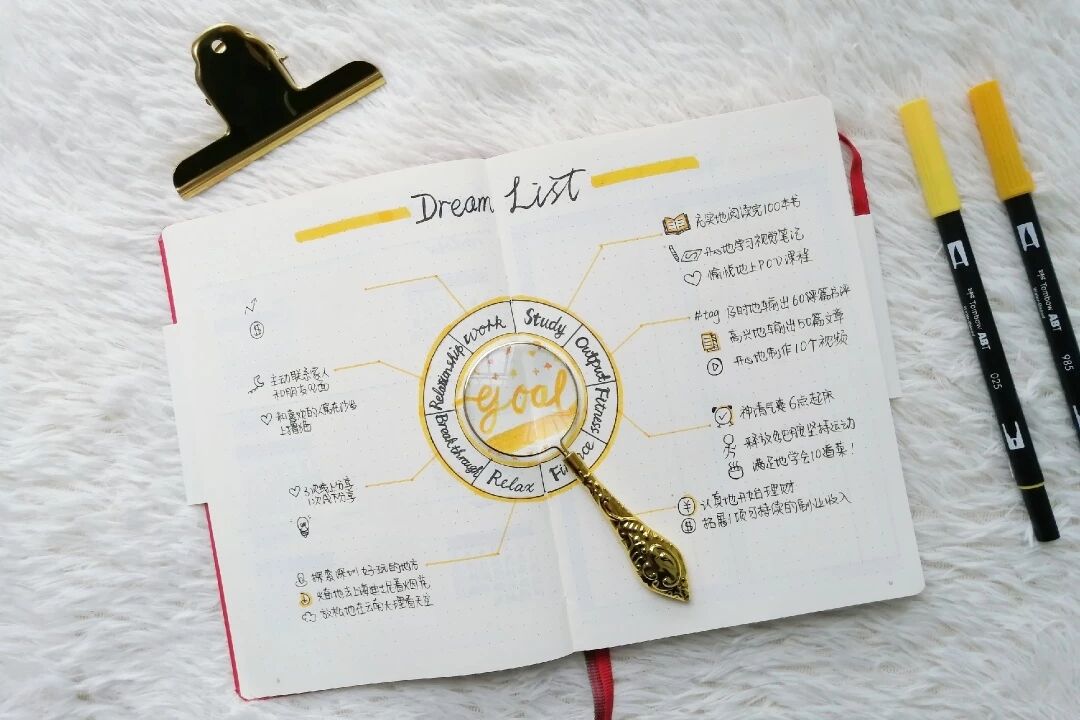 Dream List
Work
Study
Output
Fitness
Relax
Breakthrough
Relationship
goal
充实地阅读完100本书
地学习视觉笔记
愉悦地上POD课程
#tag 及时地输出60篇书评
高兴地输出50篇文章
地制作10个视频
神清气爽6点起床
坚持运动
满足地学会10道菜!
认真地开始理财
拓展1项可持续的副业收入
主动联系家人
和朋友见面
和喜欢的人
3次线上分享
1次线下分享
探索深圳好玩的地方
看烟花
放松地在云南大理看天空
Tombow ABT
025
Tombow ABT
985